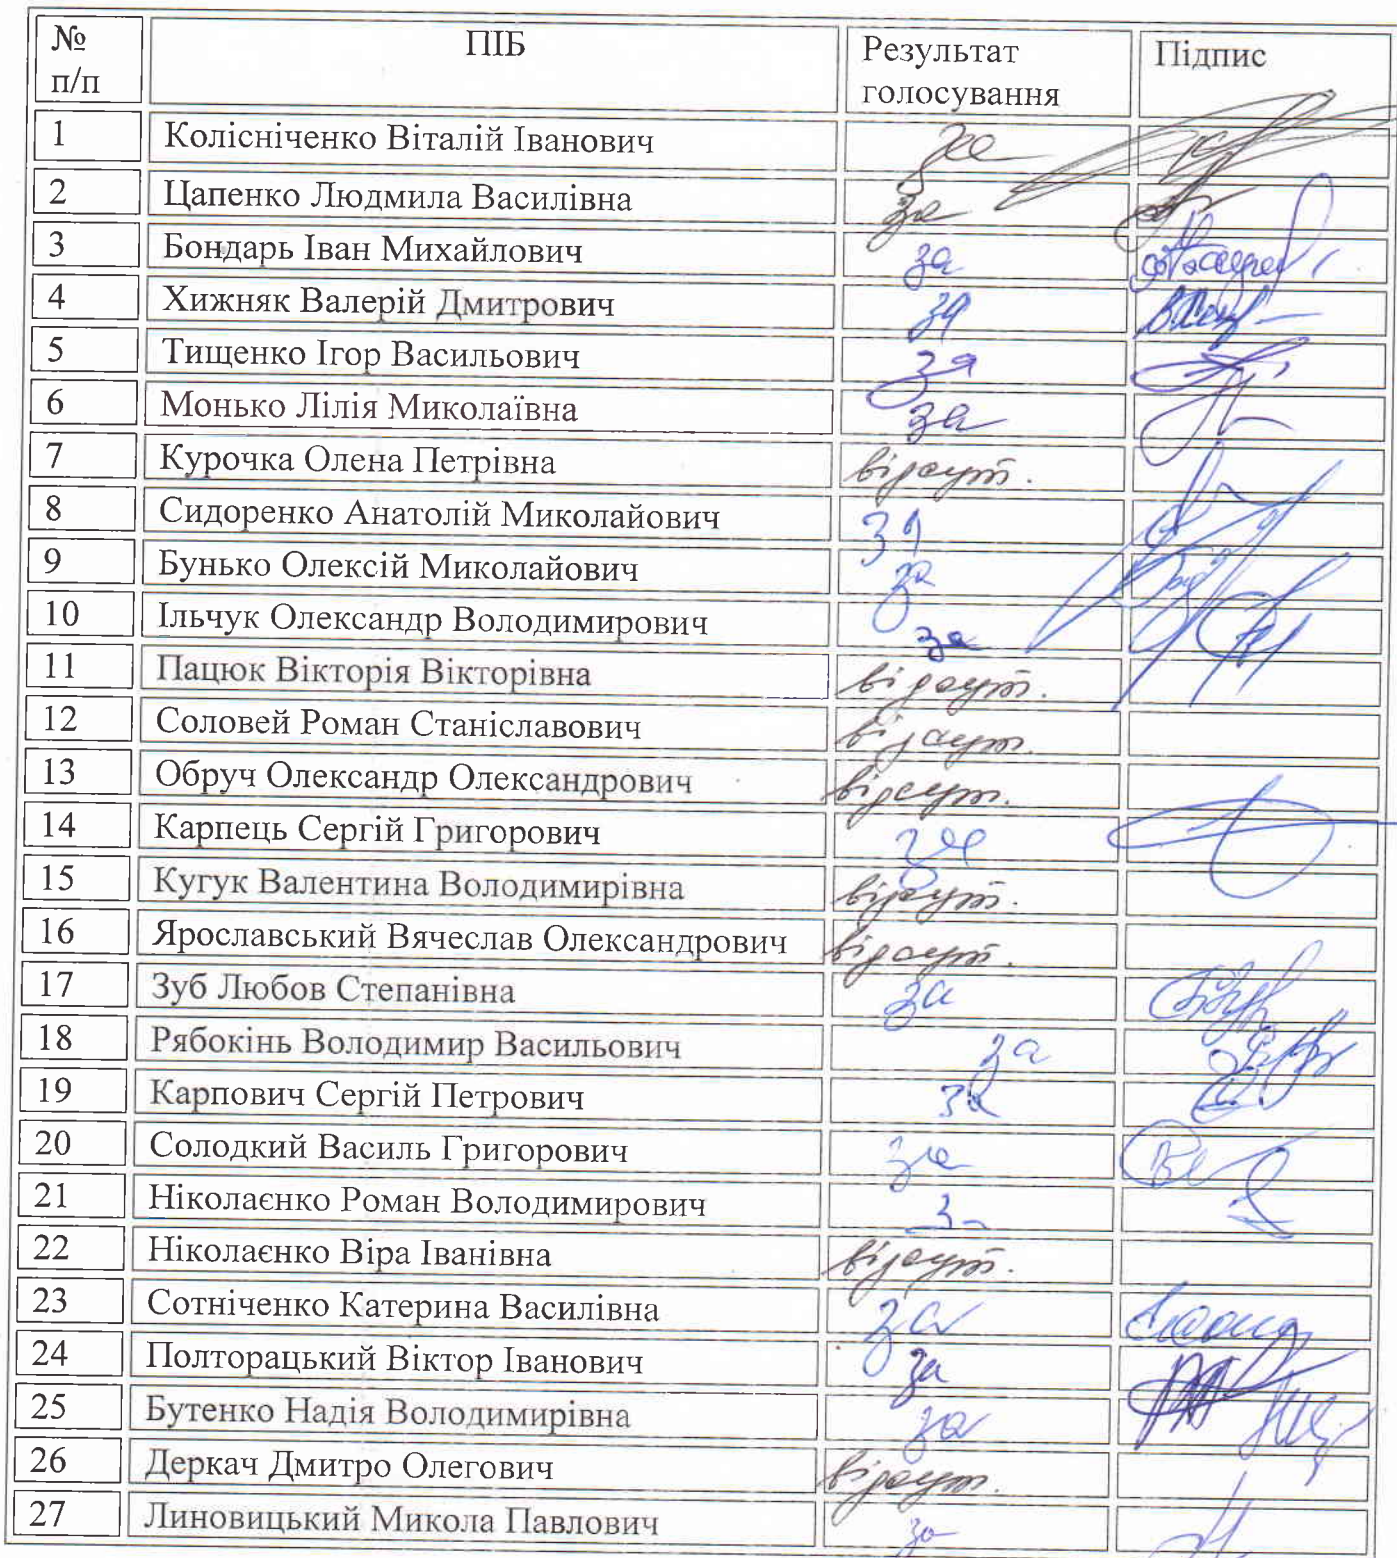 № п/п ПІБ Результат голосування Підпис
1 Колісніченко Віталій Іванович за
2 Цапенко Людмила Василівна за
3 Бондарь Іван Михайлович за
4 Хижняк Валерій Дмитрович за
5 Тищенко Ігор Васильович за
6 Монько Лілія Миколаївна за
7 Курочка Олена Петрівна відсут.
8 Сидоренко Анатолій Миколайович за
9 Бунько Олексій Миколайович за
10 Ільчук Олександр Володимирович за
11 Пацюк Вікторія Вікторівна відсут.
12 Соловей Роман Станіславович відсут.
13 Обруч Олександр Олександрович відсут.
14 Карпець Сергій Григорович за
15 Кугук Валентина Володимирівна відсут.
16 Ярославський Вячеслав Олександрович відсут.
17 Зуб Любов Степанівна за
18 Рябокінь Володимир Васильович за
19 Карпович Сергій Петрович за
20 Солодкий Василь Григорович за
21 Ніколаєнко Роман Володимирович
22 Ніколаєнко Віра Іванівна відсут.
23 Сотніченко Катерина Василівна за
24 Полторацький Віктор Іванович за
25 Бутенко Надія Володимирівна за
26 Деркач Дмитро Олегович відсут.
27 Линовицький Микола Павлович за